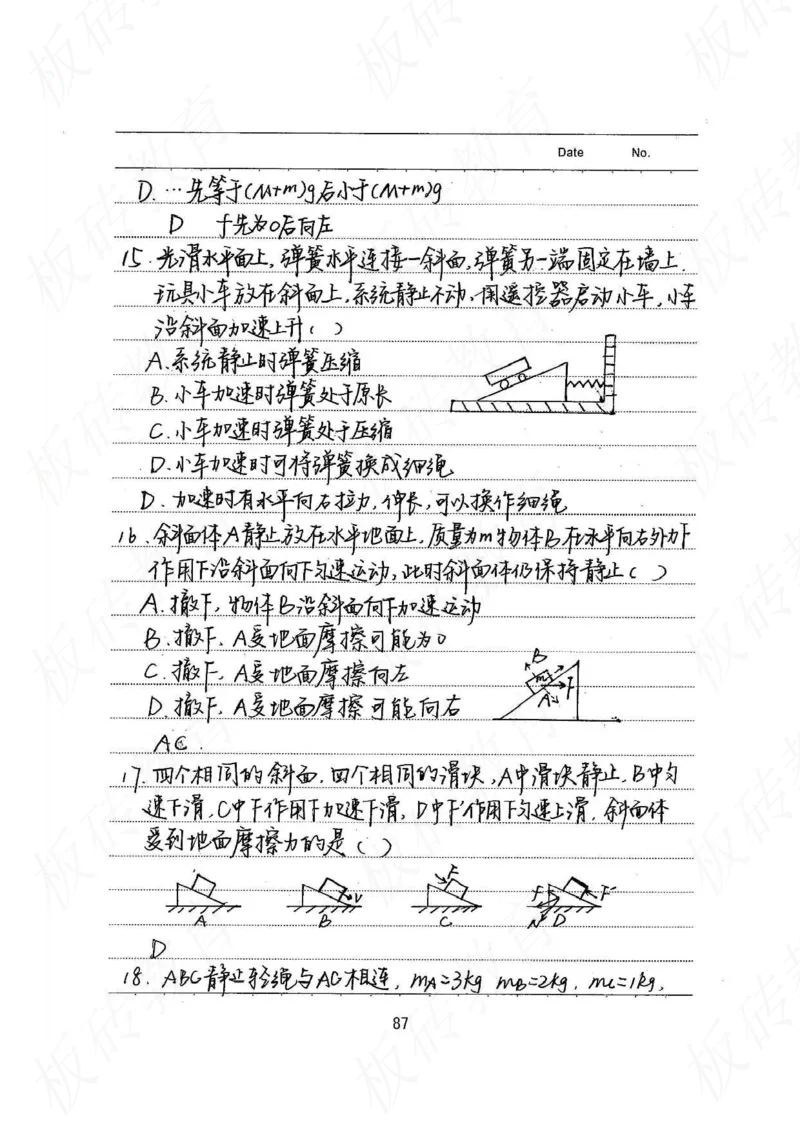 Date No.
D. …先等于(M+m)g后小于(M+m)g
D f先为0后向左
15. 光滑水平面上,弹簧水平连接一斜面,弹簧另一端固定在墙上.
玩具小车放在斜面上,系统静止不动,用遥控器启动小车,小车
沿斜面加速上升( )
A.系统静止时弹簧压缩
B.小车加速时弹簧处于原长
C.小车加速时弹簧处于压缩
D.小车加速时可将弹簧换成细绳
D. 加速时有水平向右拉力,伸长,可以换作细绳
16. 斜面体A静止放在水平地面上,质量为m物体B在水平向右外力F
作用下沿斜面向下匀速运动,此时斜面体仍保持静止( )
A.撤F,物体B沿斜面向下加速运动
B.撤F,A受地面摩擦可能为0
C.撤F,A受地面摩擦向左
D.撤F,A受地面摩擦可能向右
B
m
F
A
AC.
17. 四个相同的斜面,四个相同的滑块,A中滑块静止,B中匀
速下滑,C中F作用下加速下滑,D中F作用下匀速上滑,斜面体
受到地面摩擦力的是( )
F
v
f F
N
A B C D
D
18. ABC静止轻绳与AC相连, mA=3kg mB=2kg, mC=1kg,
87
板砖教育